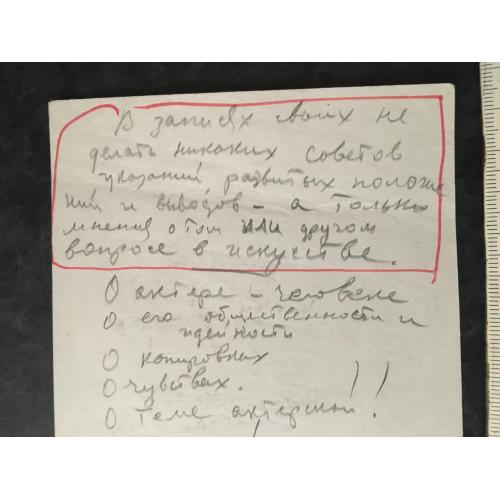 В записях своих не
делать никаких советов
указаний, развитых положе
ний и выводов – а только
мнения о том или другом
вопросе в искусстве.
О актере – человеке
О его общественности и
идейности
О копировках
О чувствах.
О теме актерской!